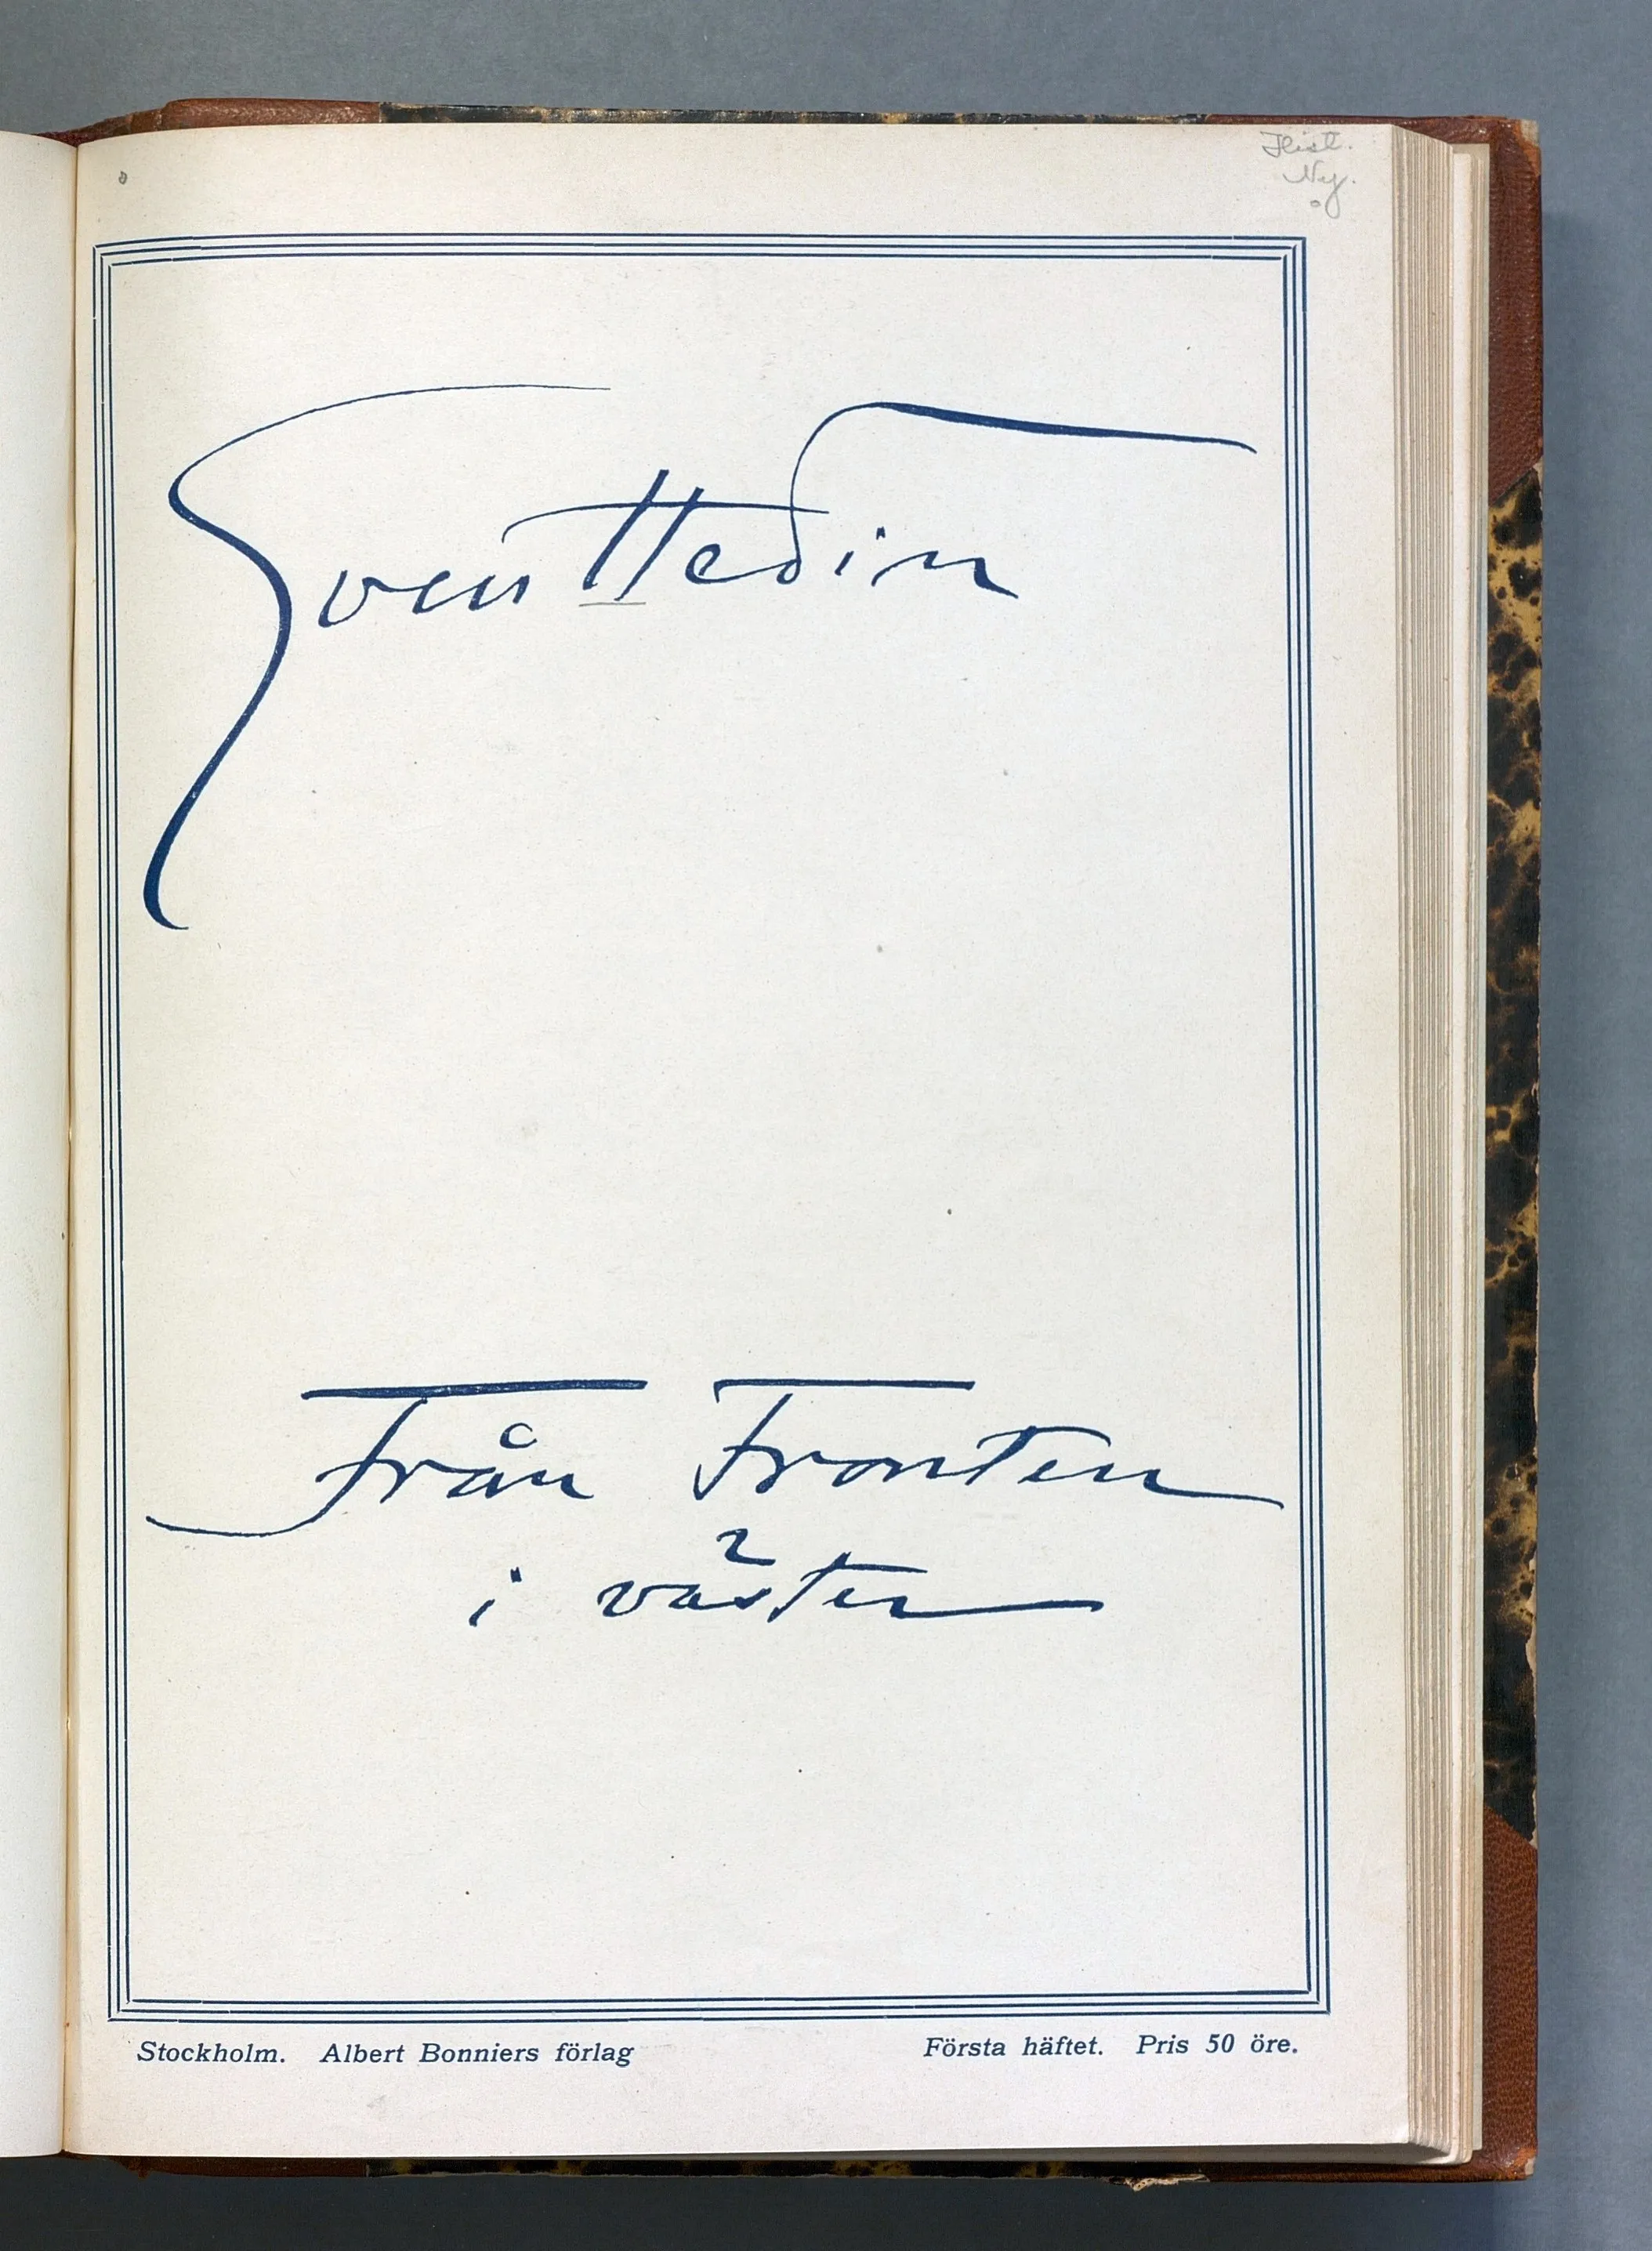 Hist.
Ny.
Sven Hedin
Från Fronten
i väster
Stockholm. Albert Bonniers förlag
Första häftet. Pris 50 öre.